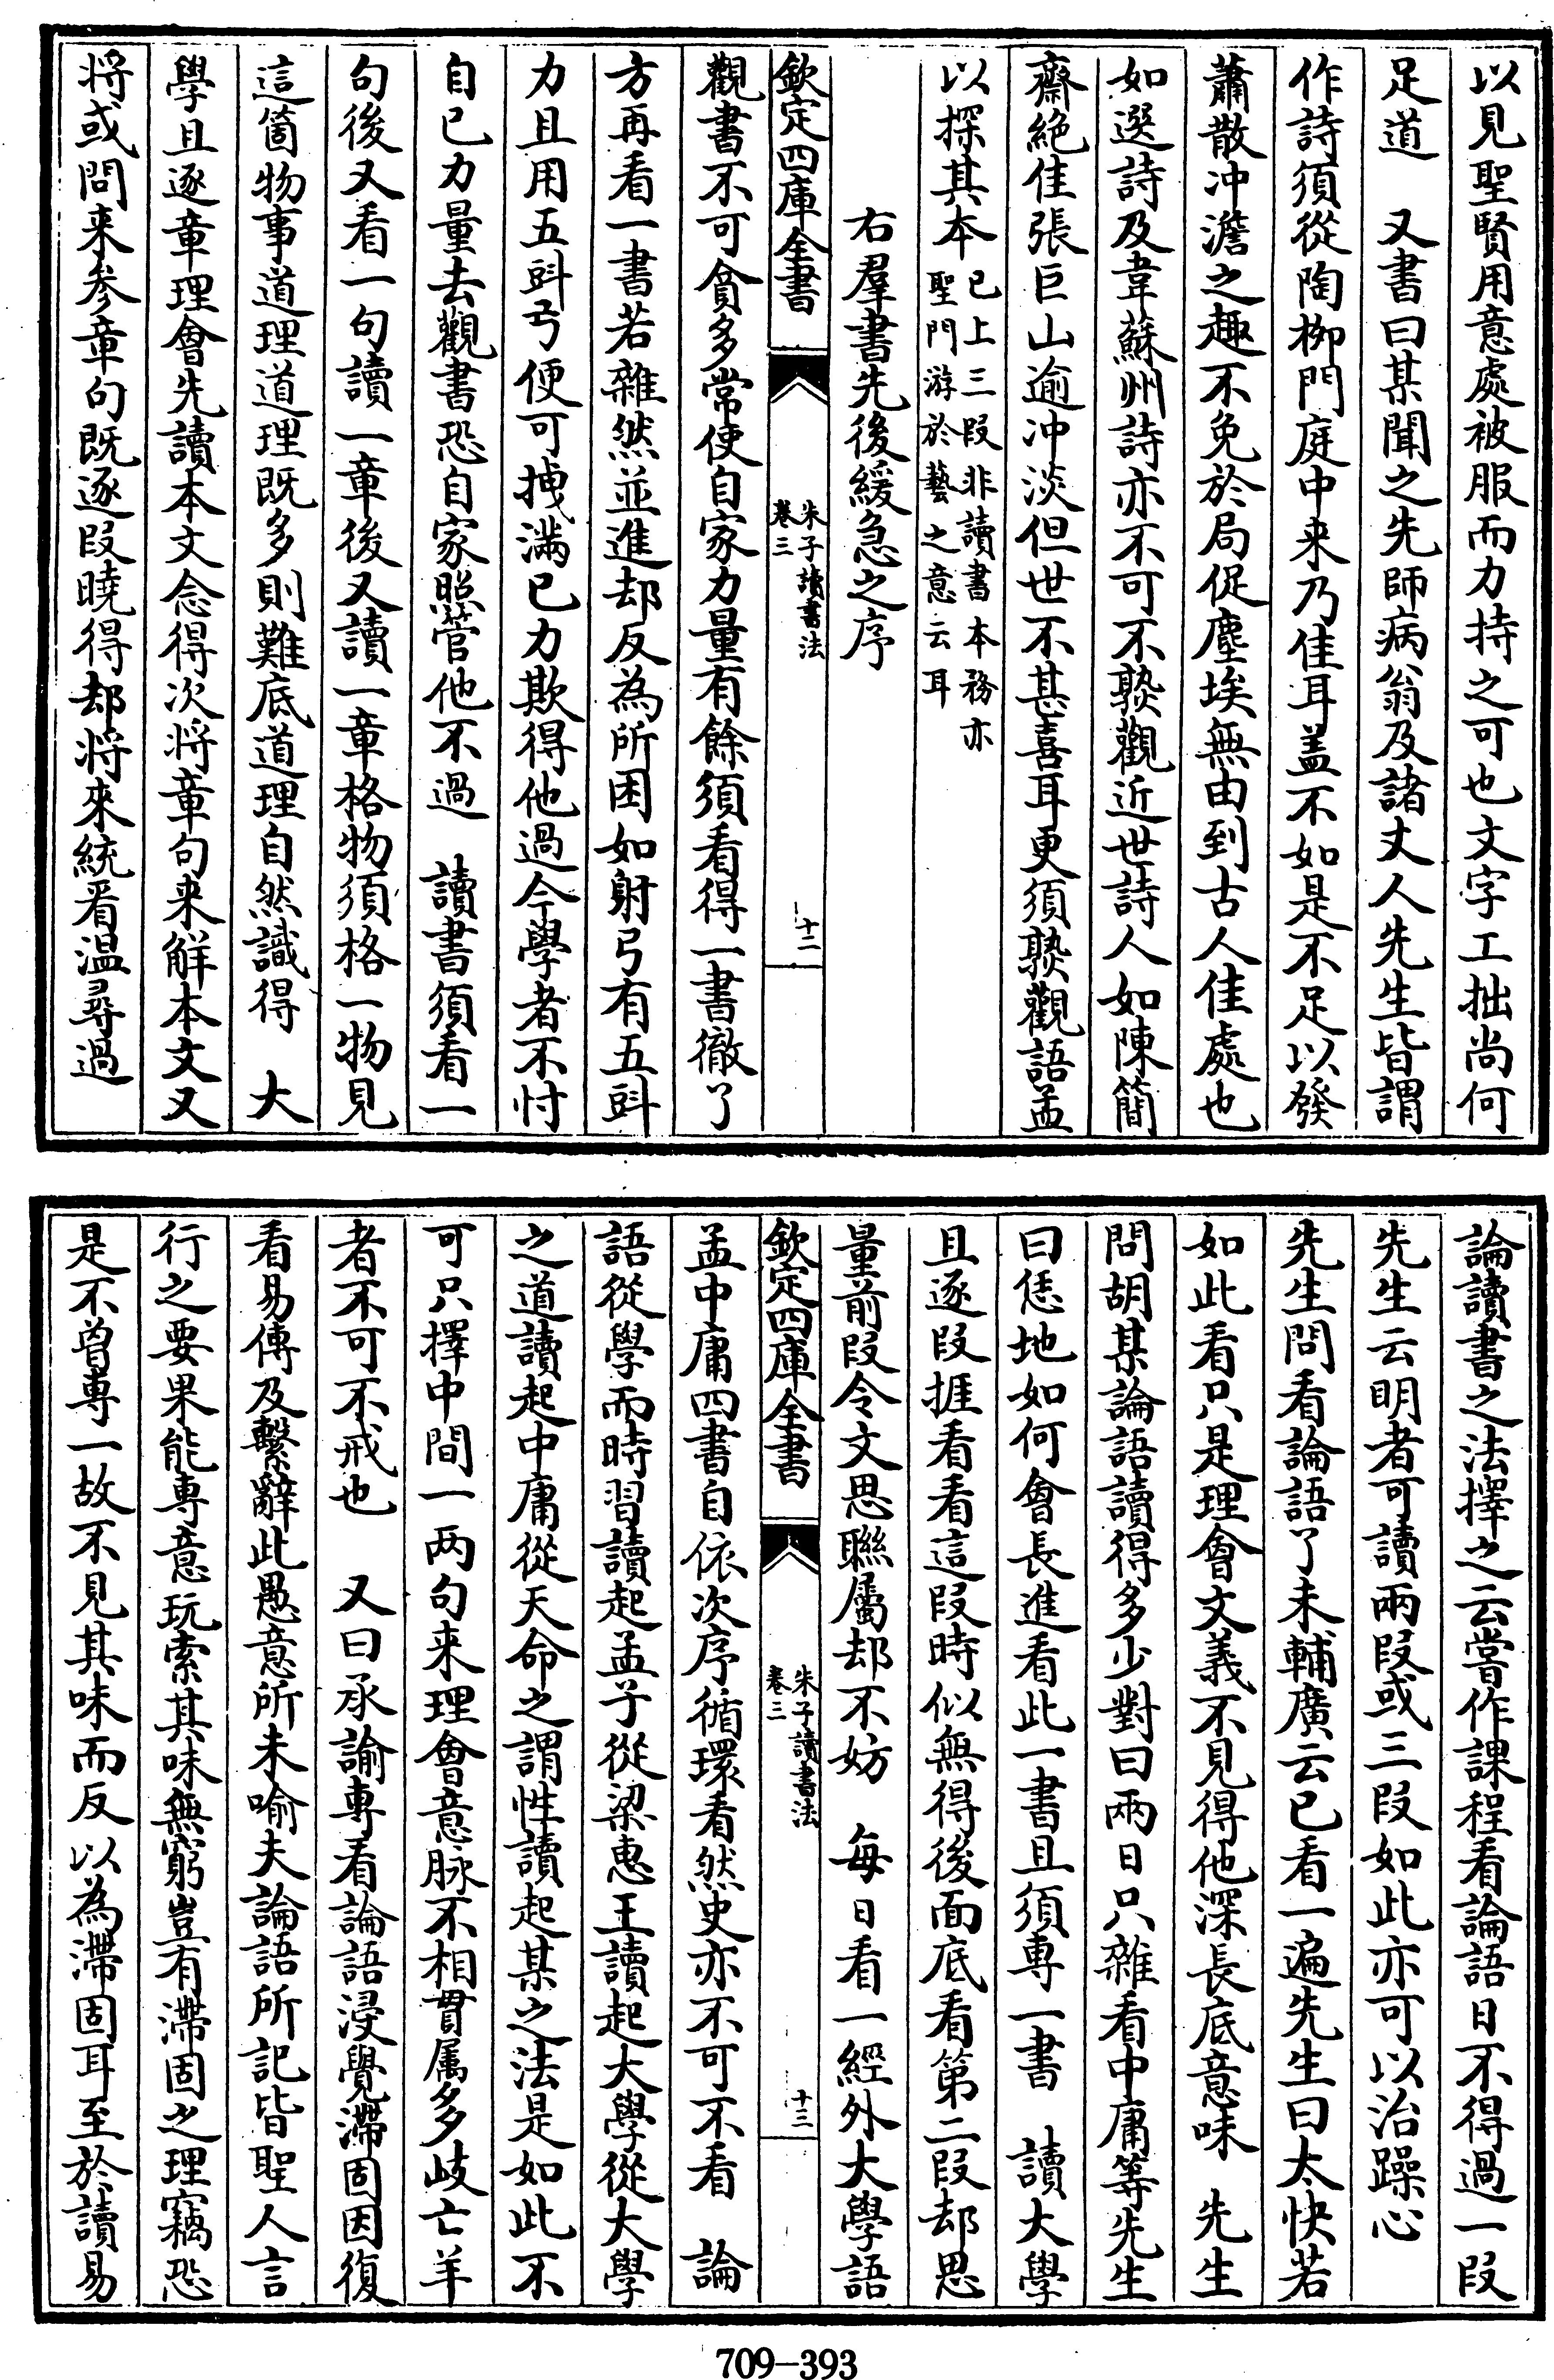 以見聖賢用意處被服而力持之可也文字工拙尚何
足道　又書曰某聞之先師病翁及諸丈人先生皆謂
作詩須從陶柳門庭中来乃佳耳盖不如是不足以發
蕭散冲澹之趣不免於局促塵埃無由到古人佳處也
如選詩及韋蘇州詩亦不可不熟觀近世詩人如陳簡
齋絶佳張巨山逾冲淡但世不甚喜耳更須熟觀語孟
以探其本已上三段非讀書本務亦
聖門游於藝之意云耳
右羣書先後緩急之序
欽定四庫全書
朱子讀書法
卷三
十二
觀書不可貪多常使自家力量有餘須看得一書徹了
方再看一書若雜然並進却反為所困如射弓有五㪷
力且用五㪷弓便可拽滿已力欺得他過今學者不忖
自已力量去觀書恐自家照管他不過　讀書須看一
句後又看一句讀一章後又讀一章格物須格一物見
這箇物事道理道理既多則難底道理自然識得　大
學且逐章理會先讀本文念得次将章句来解本文又
将或問来参章句既逐段曉得却将來統看温尋過
論讀書之法擇之云嘗作課程看論語日不得過一段
先生云明者可讀兩段或三段如此亦可以治躁心
先生問看論語了未輔廣云已看一遍先生曰太快若
如此看只是理會文義不見得他深長底意味　先生
問胡某論語讀得多少對曰兩日只雜看中庸等先生
曰恁地如何會長進看此一書且須専一書　讀大學
且逐段捱看看這段時似無得後面底看第二段却思
量前段令文思聯屬却不妨　每日看一經外大學語
欽定四庫全書
朱子讀書法
卷三
十三
孟中庸四書自依次序循環看然史亦不可不看　論
語從學而時習讀起孟子從梁惠王讀起大學從大學
之道讀起中庸從天命之謂性讀起某之法是如此不
可只擇中間一两句来理會意脉不相貫属多歧亡羊
者不可不戒也　又曰承諭専看論語浸覺滯固因復
看易傳及繫辭此愚意所未喻夫論語所記皆聖人言
行之要果能専意玩索其味無窮豈有滯固之理竊恐
是不曾専一故不見其味而反以為滯固耳至於讀易
709-393